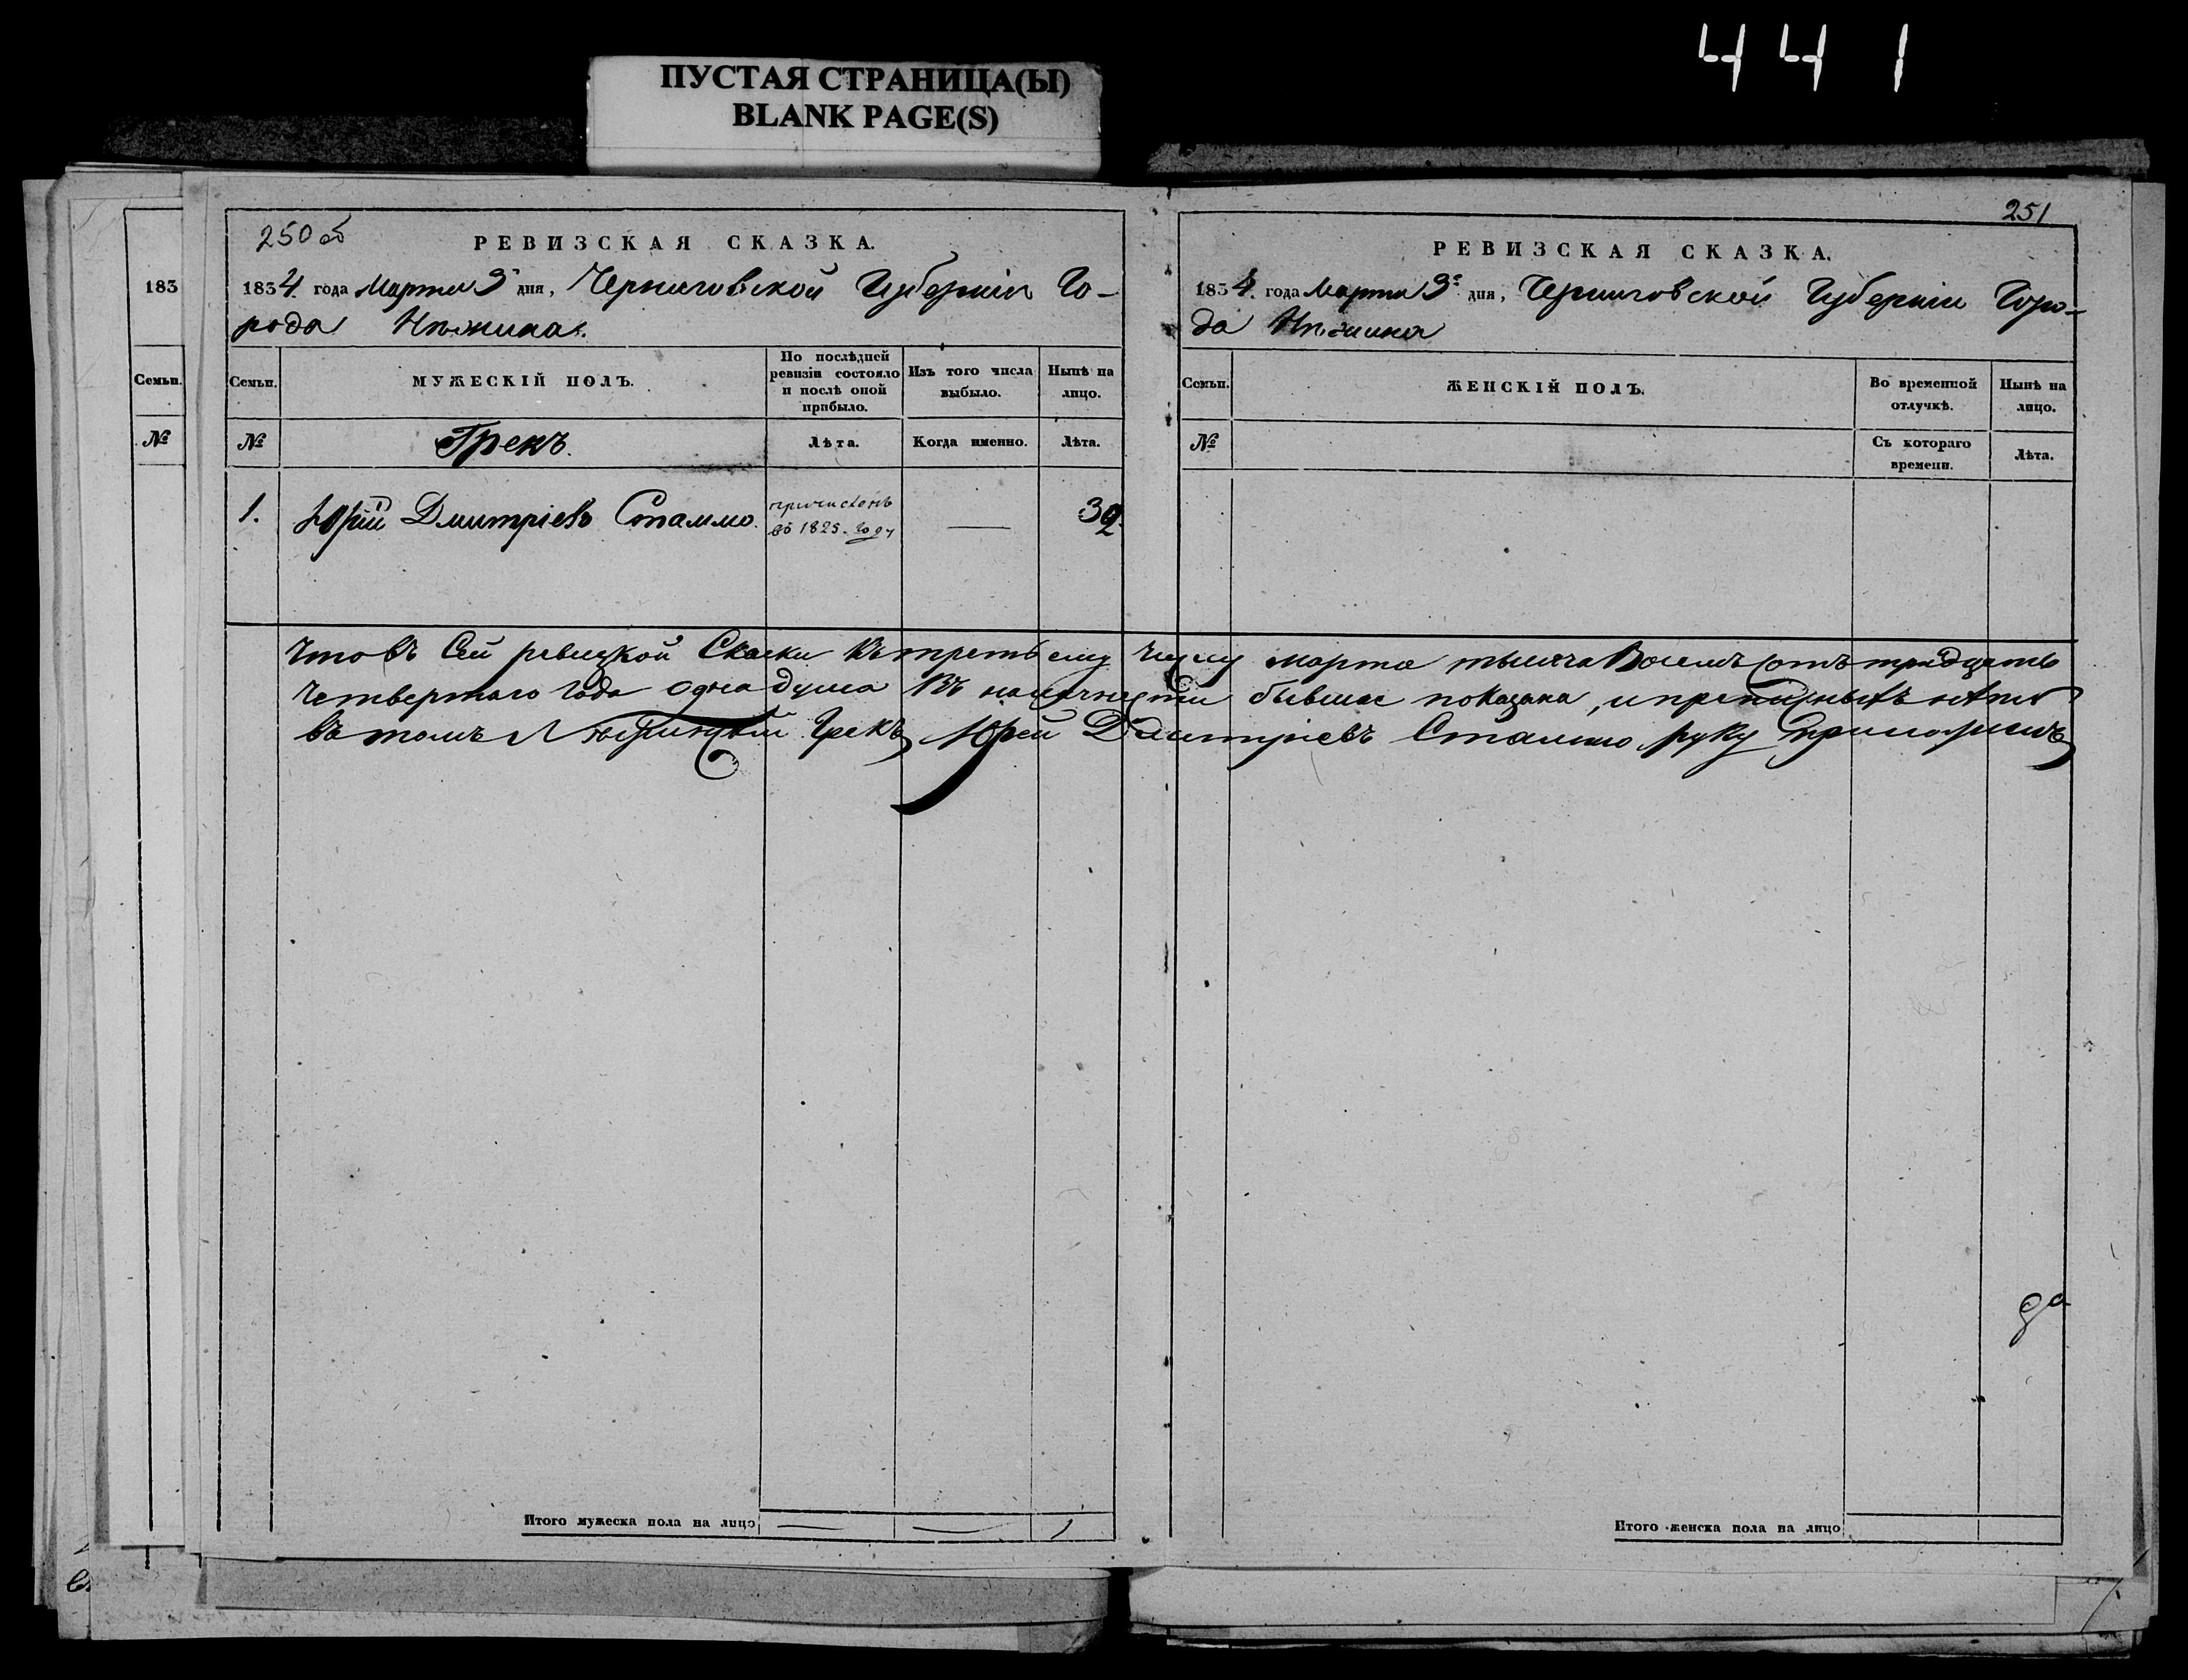 441
ПУСТАЯ СТРАНИЦА(Ы)
BLANK PAGE(S)
183
Семьи.
№
250 об
РЕВИЗСКАЯ СКАЗКА.
1834 года Марта 3 дня, Черниговской Губерніи Го-
рода Нѣжина.
Семьи.
МУЖЕСКІЙ ПОЛЪ.
По послѣдней ревизіи состояло и послѣ оной прибыло.
Изъ того числа выбыло.
Нынѣ на лицо.
№
Грекъ.
Лѣта.
Когда именно.
Лѣта.
1.
Юрій Дмитріевъ Стаммо.
причисленъ
въ 1825. году
—
32.
Итого мужеска пола на лицо
— — 1
251
РЕВИЗСКАЯ СКАЗКА.
1834. года Марта 3 дня, Черниговской Губерніи Горо-
да Нѣжина
Семьи.
ЖЕНСКІЙ ПОЛЪ.
Во временной отлучкѣ.
Нынѣ на лицо.
№
Съ котораго времени.
Лѣта.
Что въ Сей ревизкой Скаски къ третьему числу марта тысяча Восемъ сотъ тридцать
четвертого года одна душа Въ наличности бывшае показана, и прописныхъ нѣтъ
въ томъ Нежинский Грекъ Юрей Дмитріевъ Стаммо руку приложилъ
да
Итого женска пола на лицо